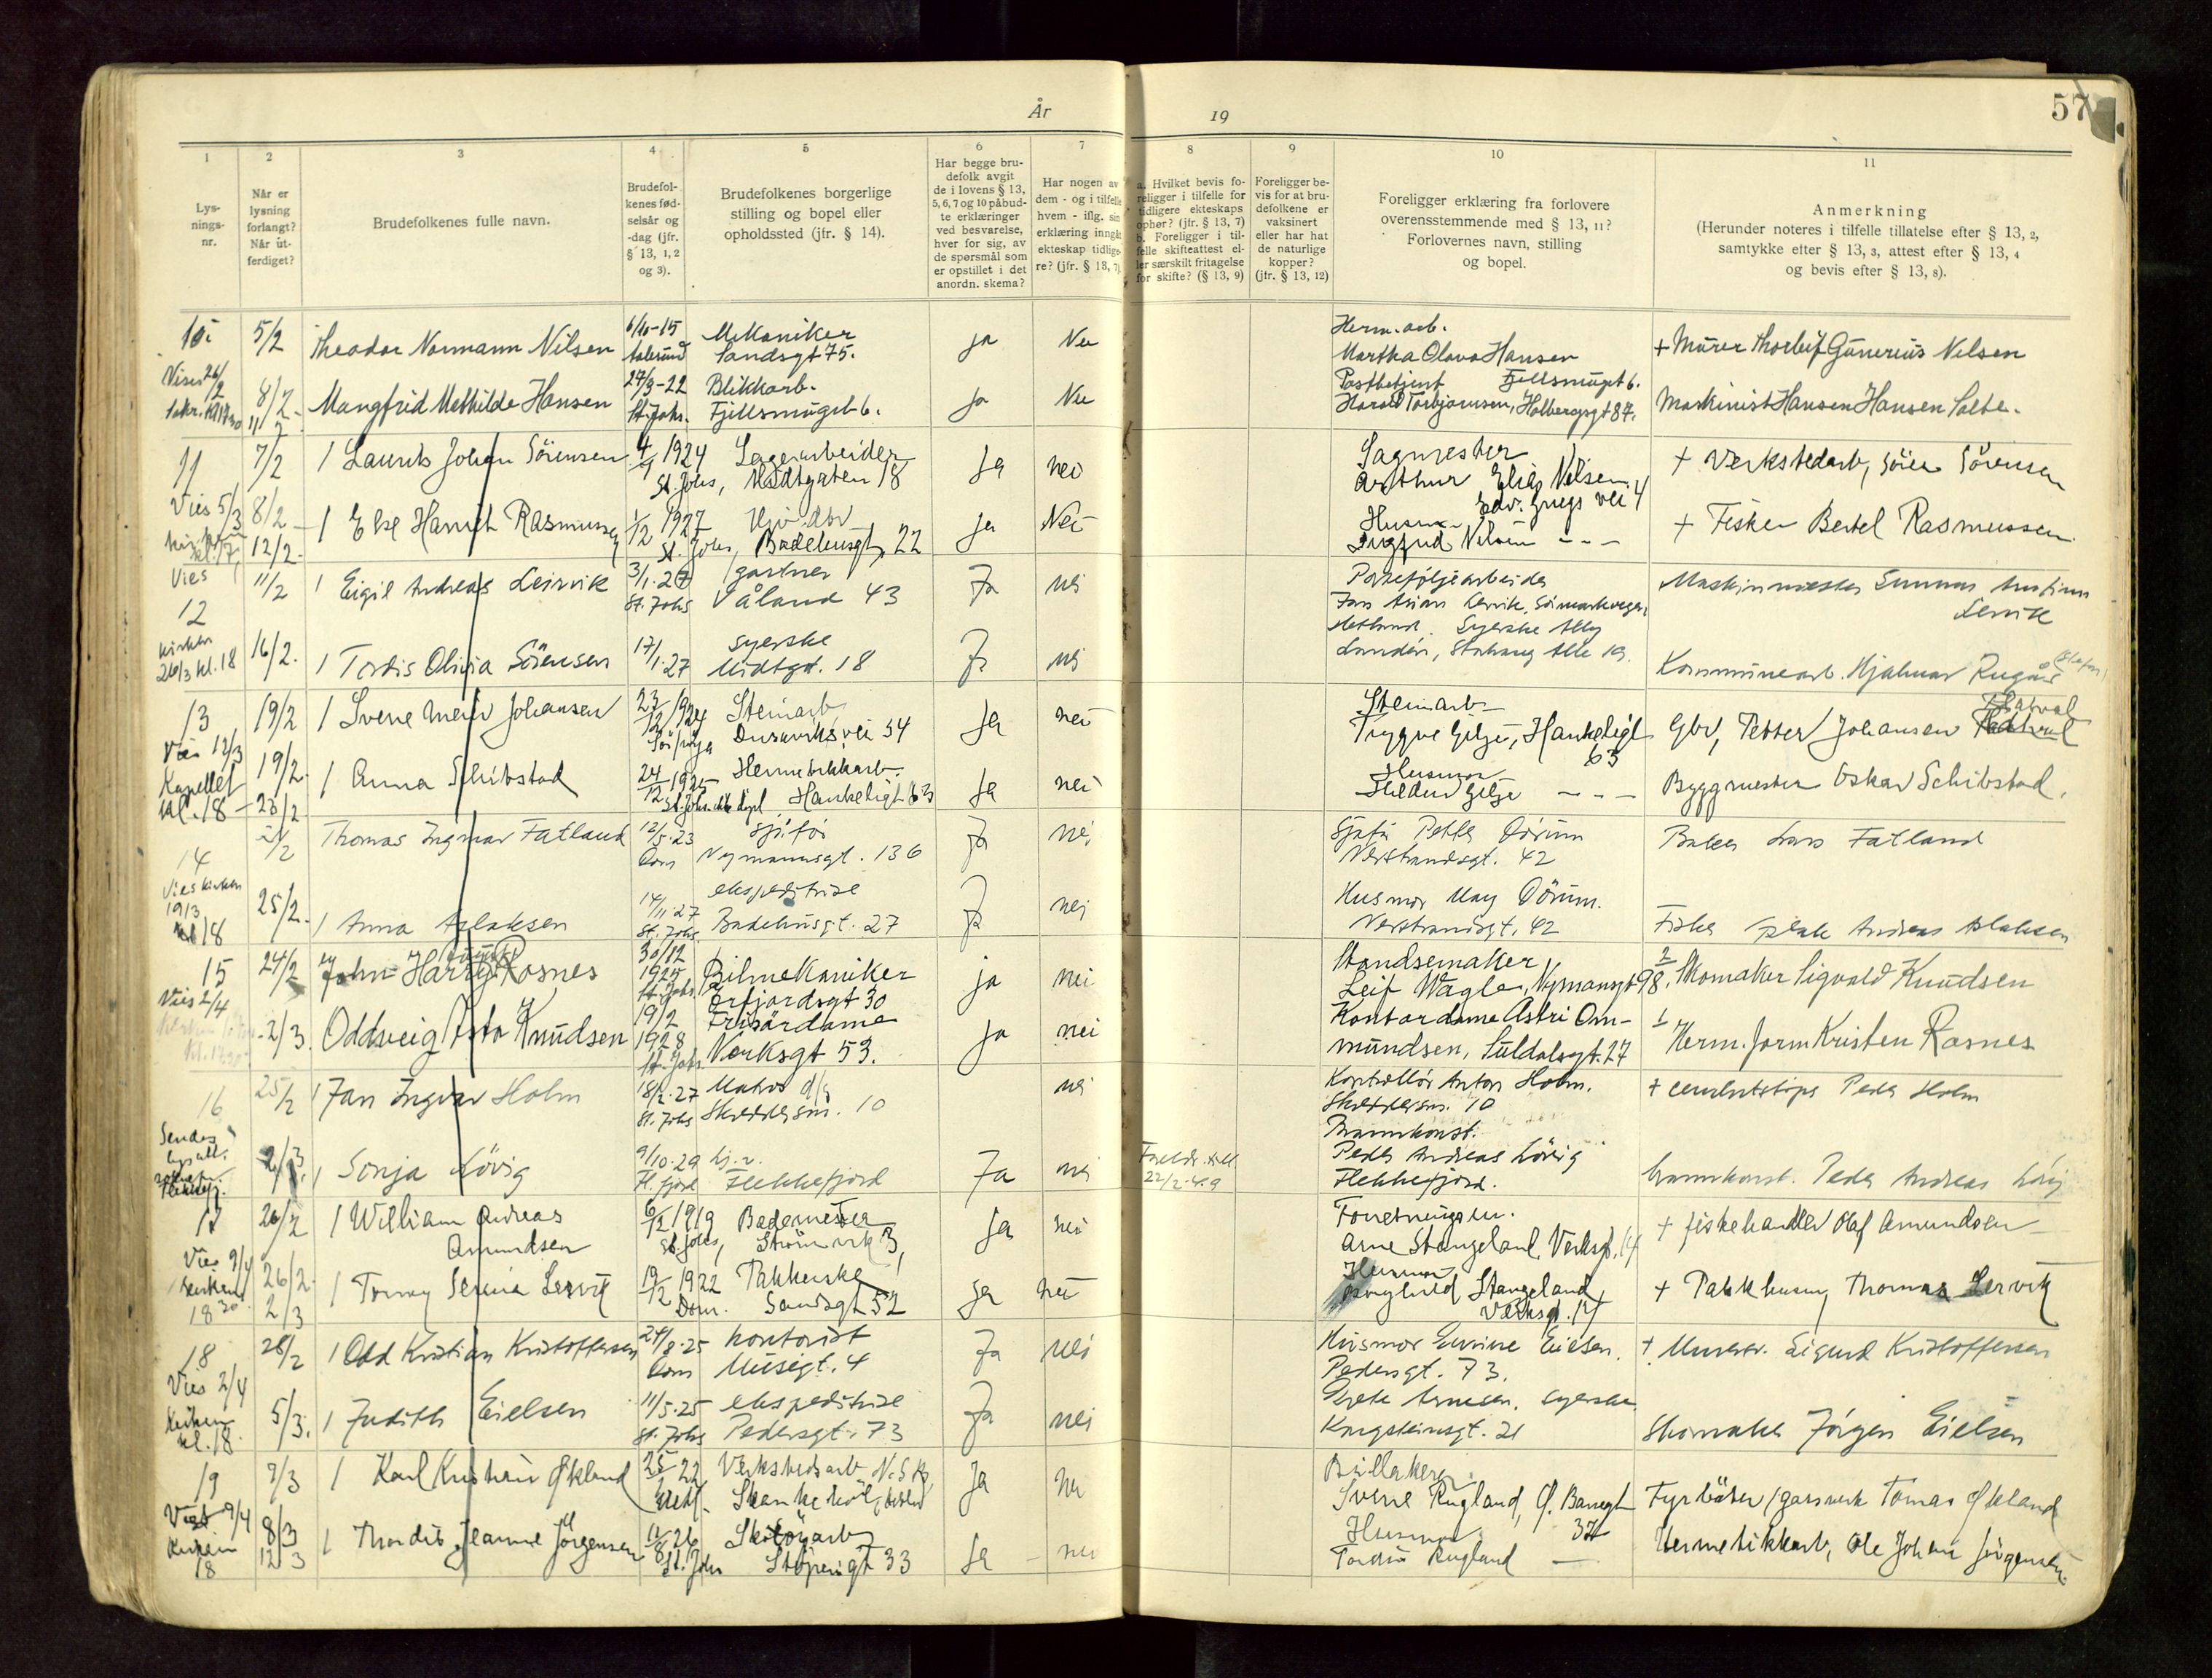 År 19
57
1
2
3
4
5
6
7
8
9
10
11
Lys-
nings-
nr.
Når er
lysning
forlangt?
Når ut-
ferdiget?
Brudefolkenes fulle navn.
Brudefol-
kenes fød-
selsår og
-dag (jfr.
§ 13, 1, 2
og 3).
Brudefolkenes borgerlige
stilling og bopel eller
opholdssted (jfr. § 14).
Har begge bru-
defolk avgit
de i lovens § 13,
5, 6, 7 og 10 påbud-
te erklæringer
ved besvarelse,
hver for sig, av
de spørsmål som
er opstillet i det
anordn. skema?
Har nogen av
dem - og i tilfelle
hvem - iflg. sin
erklæring inngå
ekteskap tidlige-
re? (jfr. § 13, 7)
a. Hvilket bevis fo-
religger i tilfelle for
tidligere ekteskaps
ophør? (jfr. § 13, 7)
b. Foreligger i til-
felle skifteattest el-
ler særskilt fritagelse
for skifte? (§ 13, 9)
Foreligger be-
vis for at bru-
defolkene er
vaksinert
eller har hat
de naturlige
kopper?
(jfr. § 13, 12)
Foreligger erklæring fra forlovere
overensstemmende med § 13, 11?
Forlovernes navn, stilling
og bopel.
Anmerkning
(Herunder noteres i tilfelle tillatelse efter § 13, 2,
samtykke efter § 13, 3, attest efter § 13, 4
og bevis efter § 13, 8).
10
5/2
Theodor Normann Nilsen
6/10-15
Mekaniker
Sandsgt 75.
ja
Nei
Herm. arb.
Martha Olava Hansen
Fjellsmuget 6.
+ Murer Thorleif Gunerius Nilsen
8/2
11/2
Mangfrid Mathilde Hansen
27/3-22
St. Johs.
Blikkarb.
Fjellsmuget 6.
ja
Nei
Postbetjent
Harald Torbjørnsen, Holbergsgt 87.
Maskinist Hansen Hansen Salte.
11
7/2
1 Laurits Johan Sörensen
4/ 1924
Lagerarbeider
St. Johs, Midtgaten 18
ja
nei
Sagmester
Arthur Elias Nilsen
Edv. Griegs vei 4
+ Verkstedarb, Sören Sörensen
Vies 5/3
kl. 17
8/2
12/2
1 Else Harriet Rasmussen
1/12 1927
St. Johs, Badehusgt, 22
ja
Nei
Husmor
Sigfrid Nilsen - - -
+ Fisker Bertel Rasmussen
Vies
12
kirken
26/3 kl. 18
11/2
1 Eigil Andreas Leirvik
3/1.27
St. Johs
gartner
Våland 43
Ja
nei
Portefoljearbeider
Maskinmester Gunnar
Leirvik
16/2.
1 Tordis Olivia Sörensen
17/1.27
syerske
Midtgt. 18
Ja
nei
Syerske
Kommunearb. Hjalmar
13
Vies 12/3
Kapellet
kl. 18
19/2
1 Sverre Johansen
23/12 1924
Steinarb
Dusaviksvei 54
ja
nei
Steinarb
Trygve Gilje, Haukeligt
63
Gbr, Petter Johansen
19/2
23/2
1 Anna Schibstad
24/12 1925
Hermetikkarb.
Haukeligt 63
ja
nei
Husmor
Gilje - - -
Byggmester Oskar Schibstad.
14
Vies kirken
19/3
kl 18
Thomas Ingmar Fatland
12/5.23
Dom
sjåför
Nymannsgt. 136
Ja
nei
Sjåför Petter Dörum
Verstrandsgt. 42
Baker Lars Fatland
25/2.
1 Anna Aslaksen
14/11.27
St. Johs
ekspeditrise
Badehusgt. 27
Ja
nei
Husmor May Dörum.
Verstrandsgt. 42
Fisker Aslak Andreas Aslaksen
15
Vies 2/4
24/2
John Harry Rosnes
30/12
1925
St. Johs
Bilmekaniker
Erfjordsgt 30
ja
nei
Standsemaker
Leif Wagle, Nymansgt 98.
2
Skomaker Sigvald Knudsen
2/3.
Oddveig Asta Knudsen
19/2
1928
St. Johs
Frisördame
Verksgt 53.
ja
nei
Kontordame Astri Om-
mundsen, Suldalsgt. 27
1
Herm. form Kristen Rosnes
16
25/2
1 Jan Ingvar Holm
18/2.27
St. Johs
Matros d/s
Skreddersm. 10
nei
Kontrollör Anton Holm.
Skreddersm. 10
+ cementstöper Peder Holm
Sendes
2/3.
1 Sonja Lövig
9/10.29
Fl. fjord
hj. v.
Flekkefjord
Ja
nei
Foreldr. till.
22/2.49
Brannkonst.
Peder Andreas Lövig
Flekkefjord.
Brannkonst. Peder Andreas Lövig
17
Vies 9/4
kirken
18 30
26/2
1 William Andreas
Amundsen
6/12 1919
St. Johs,
Bademester
Strömvik 3,
ja
nei
Forretningsm.
Arne Stangeland, Verksgt. 14
+ fiskehandler Olaf Amundsen
26/2
2/3
1 Tonny Serine Lervik
19/12 1922
Dom.
Pakkerske
Sandsgt 52
ja
nei
Husmor
Stangeland
Verksgt. 14
+ Pakkhusmg Thomas Lervik
18
Vies 2/4
Kirken
kl. 18
28/2
1 Odd Kristian Kristoffersen
24/8.25
Dom
kontorist
Musegt. 4
Ja
nei
Husmor Elvine Eielsen.
Pedersgt. 73.
+ Murerm. Sigurd Kristoffersen
5/3.
1 Judith Eielsen
11/5.25
St. Johs
ekspeditrise
Pedersgt. 73
Ja
nei
Grete Arnesen. syerske
Kongsteinsgt. 21
Skomaker Jörgen Eielsen
19
9/4
Kirken
18
7/3
1 Karl Kristian Økland
25/ 22
Verkstedsarb
ja
nei
Sverre Rugland,
37
Fyrböter/gassverk Tomas Økland
8/3
12/3
1 Thordis Jeanne Jörgensen
11/8 26
St. Johs
Skotöyarb
Störensgt 33
ja
nei
Husmor
Rugland —
Hermetikkarb, Ole Johan Jörgensen